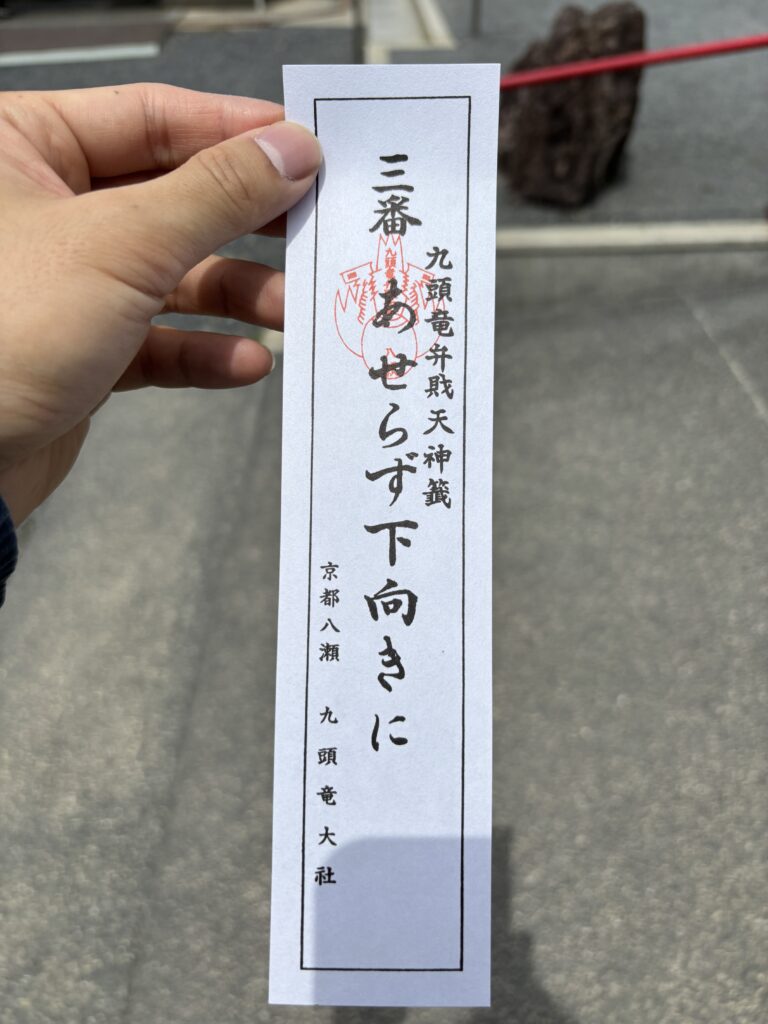 九頭竜弁戝天神籤
三番 あせらず下向きに
京都八瀬 九頭竜大社